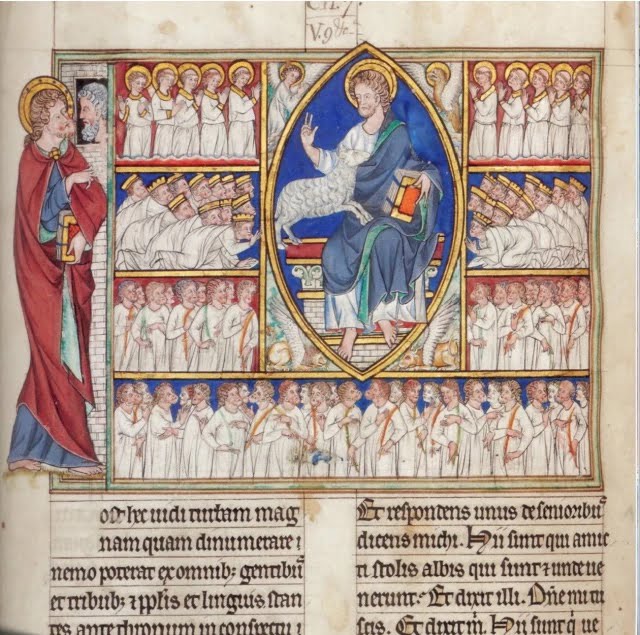 V. 9 &c.
hec uidi turbam mag
nam quam dinumerare
nemo poterat ex omnibꝫ gentibꝰ
et tribubꝫ ⁊ pplis et linguis stan
tes ante thronum in conspectu
Et respondens unus de senioribꝰ
dicens michi. Hii sunt qui amic
ti stolis albis qui sunt ⁊ unde ue
nerunt. Et dixit illi. Dñe mi tu
scis. Et dixit m̃. Hii sunt q̇ ue